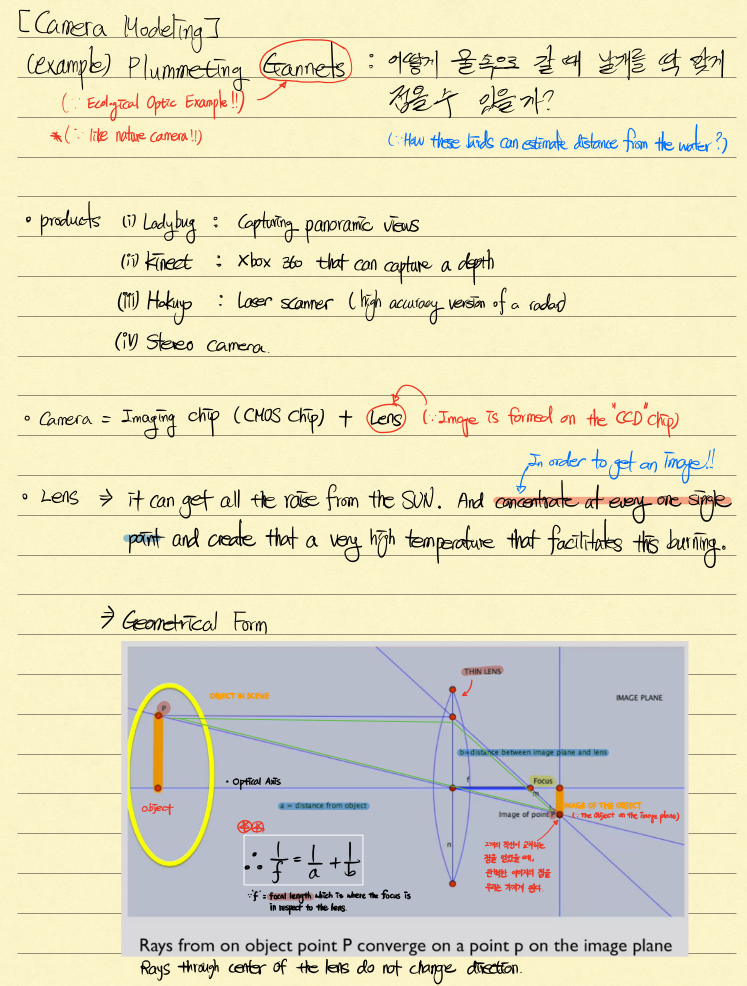 [Camera Modeling]
(example) Plummeting Gannets : 어떻게 물속으로 갈 때 날개를 딱 맞게
접을 수 있을까?
(∵ Ecological Optic Example!!)
*(∵ like nature camera!!)
(∵How these birds can estimate distance from the water?)
• products (i) Ladybug : Capturing panoramic views
(ii) Kinect : Xbox 360 that can capture a depth
(iii) Hokuyo : Laser scanner (high accuracy version of a radar)
(iv) Stereo camera.
• Camera = Imaging chip (CMOS chip) + Lens (∵Image is formed on the "CCD" chip)
In order to get an image!!
• Lens ⇒ it can get all the raise from the SUN. And concentrate at every one single
point and create that a very high temperature that facilitates this burning.
⇒ Geometrical Form
THIN LENS
OBJECT IN SCENE
IMAGE PLANE
P
b=distance between image plane and lens
f
Focus
• Optical Axis
m
object
a = distance from object
IMAGE OF THE OBJECT
(∵ The Object on the image plane)
Image of point P
∴ 1/f = 1/a + 1/b
n
점을 얻었을 때,
완벽한 이미지의 점을
우리는 가지게 된다.
∵ f = focal length which is where the focus is
in respect to the lens.
Rays from on object point P converge on a point p on the image plane
Rays through center of the lens do not change direction.